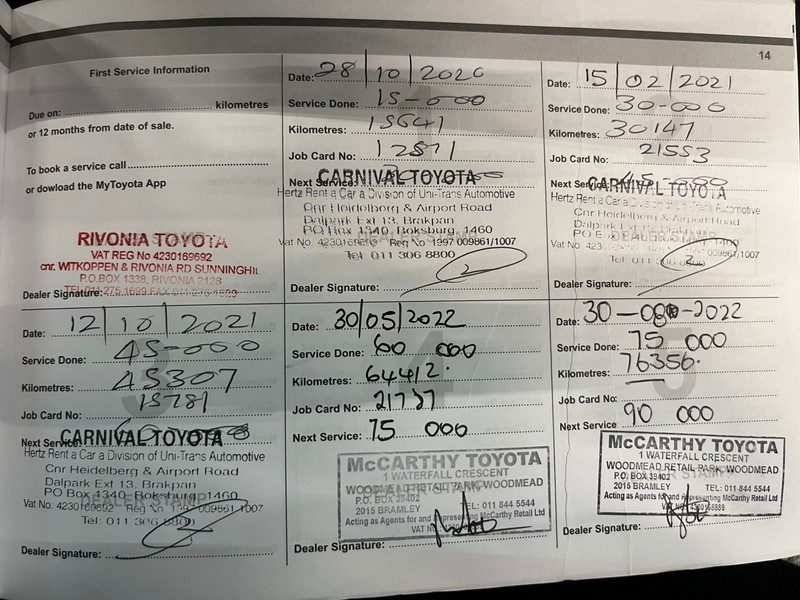 14
First Service Information
Due on: kilometres
or 12 months from date of sale.
To book a service call
or dowload the MyToyota App
RIVONIA TOYOTA
VAT REG No 4230169692
cnr. WITKOPPEN & RIVONIA RD SUNNINGHIL
P.O.BOX 1338, RIVONIA 2128
Dealer Signature:
Date: 28/10/2020
Service Done: 15-000
Kilometres: 15641
Job Card No: 12871
Next Service:
CARNIVAL TOYOTA
Hertz Rent a Car a Division of Uni-Trans Automotive
Cnr Heidelberg & Airport Road
Dalpark Ext 13, Brakpan
PO Box 1340, Boksburg 1460
Vat No. 4230169692 Reg No 1997 009861/1007
Tel: 011 306 8800
Dealer Signature:
Date: 15/02/2021
Service Done: 30-000
Kilometres: 30147
Job Card No: 21553
Next Service: 45-000
CARNIVAL TOYOTA
Hertz Rent a Car a Division of Uni-Trans Automotive
Cnr Heidelberg & Airport Road
Dalpark Ext 13, Brakpan
Tel: 011 306
Dealer Signature:
Date: 12/10/2021
Service Done: 45-000
Kilometres: 45307
Job Card No: 15781
Next Service:
CARNIVAL TOYOTA
Hertz Rent a Car a Division of Uni-Trans Automotive
Cnr Heidelberg & Airport Road
Dalpark Ext 13, Brakpan
PO Box 1340, Boksburg 1460
Vat No. 4230169692 Reg No 1997 009861/1007
DEALER STAMP
Tel: 011 306 8800
Dealer Signature:
Date: 30/05/2022
Service Done: 60 000
Kilometres: 64412.
Job Card No: 21737
Next Service: 75 000
McCARTHY TOYOTA
1 WATERFALL CRESCENT
WOODMEAD RETAIL PARK, WOODMEAD
P.O. BOX 39402
2015 BRAMLEY TEL: 011 844 5544
Acting as Agents for and Representing McCarthy Retail Ltd
Dealer Signature:
Date: 30-08-2022
Service Done: 75 000
Kilometres: 76356.
Job Card No:
90 000
Next Service
McCARTHY TOYOTA
1 WATERFALL CRESCENT
WOODMEAD RETAIL PARK, WOODMEAD
P.O. BOX 39402
2015 BRAMLEY TEL: 011 844 5544
Acting as Agents for and Representing McCarthy Retail Ltd
Dealer Signature: